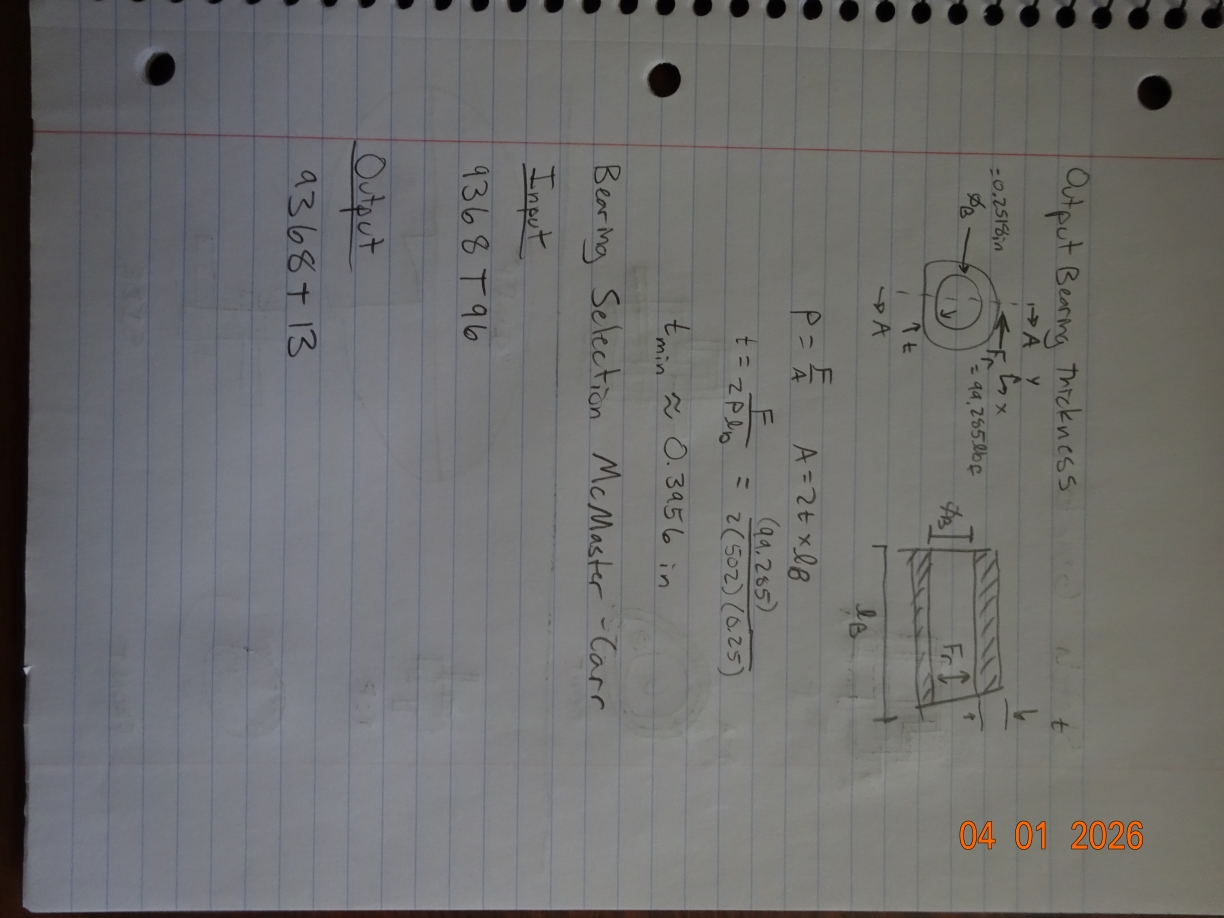 Output Bearing Thickness
t
→ A
y
x
F_r = 99.285lbf
= 0.2518in
ϕ_B
t
→ A
ϕ_B
F_r
t
l_B
P = F/A A = 2t x l_B
t = F/(2Pl_B) = (99.285)/(2(502)(0.25))
t_min ≈ 0.3956 in
Bearing Selection McMaster-Carr
Input
9368T96
Output
9368T13
04 01 2026